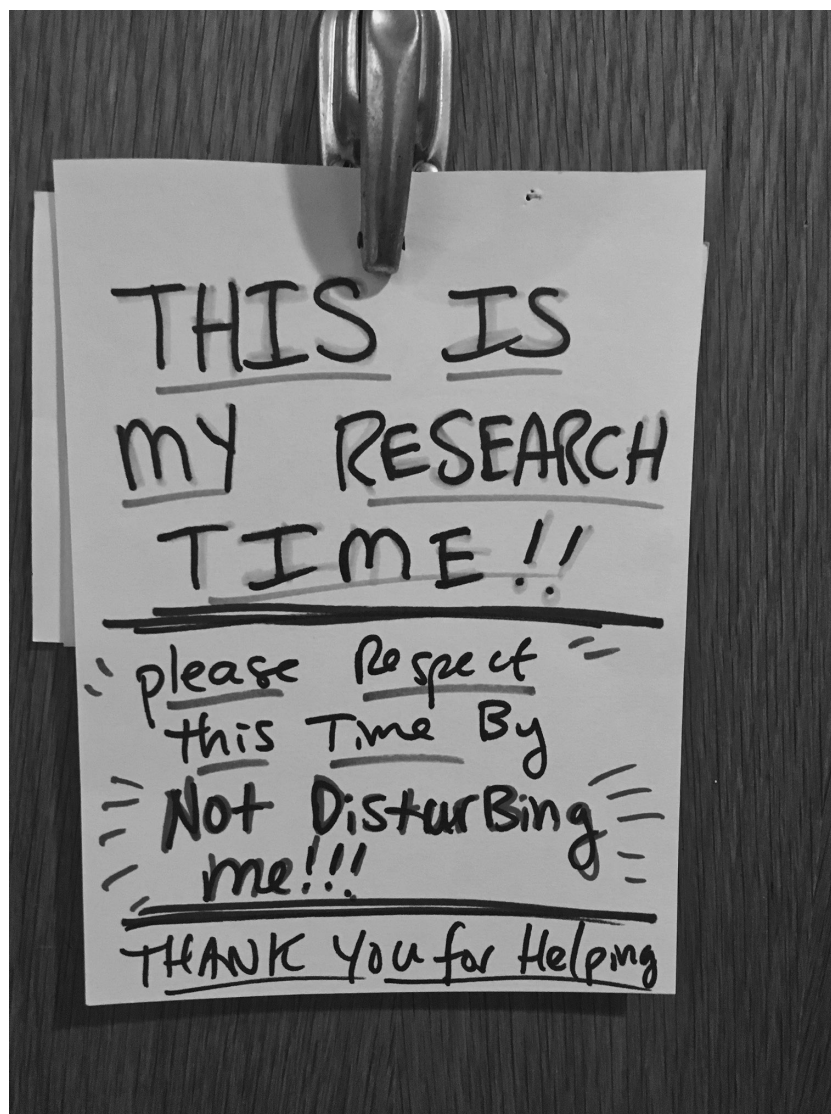 THIS IS
MY RESEARCH
TIME!!
please Respect
this Time By
Not DisturBing
me!!!
THANK You for Helping